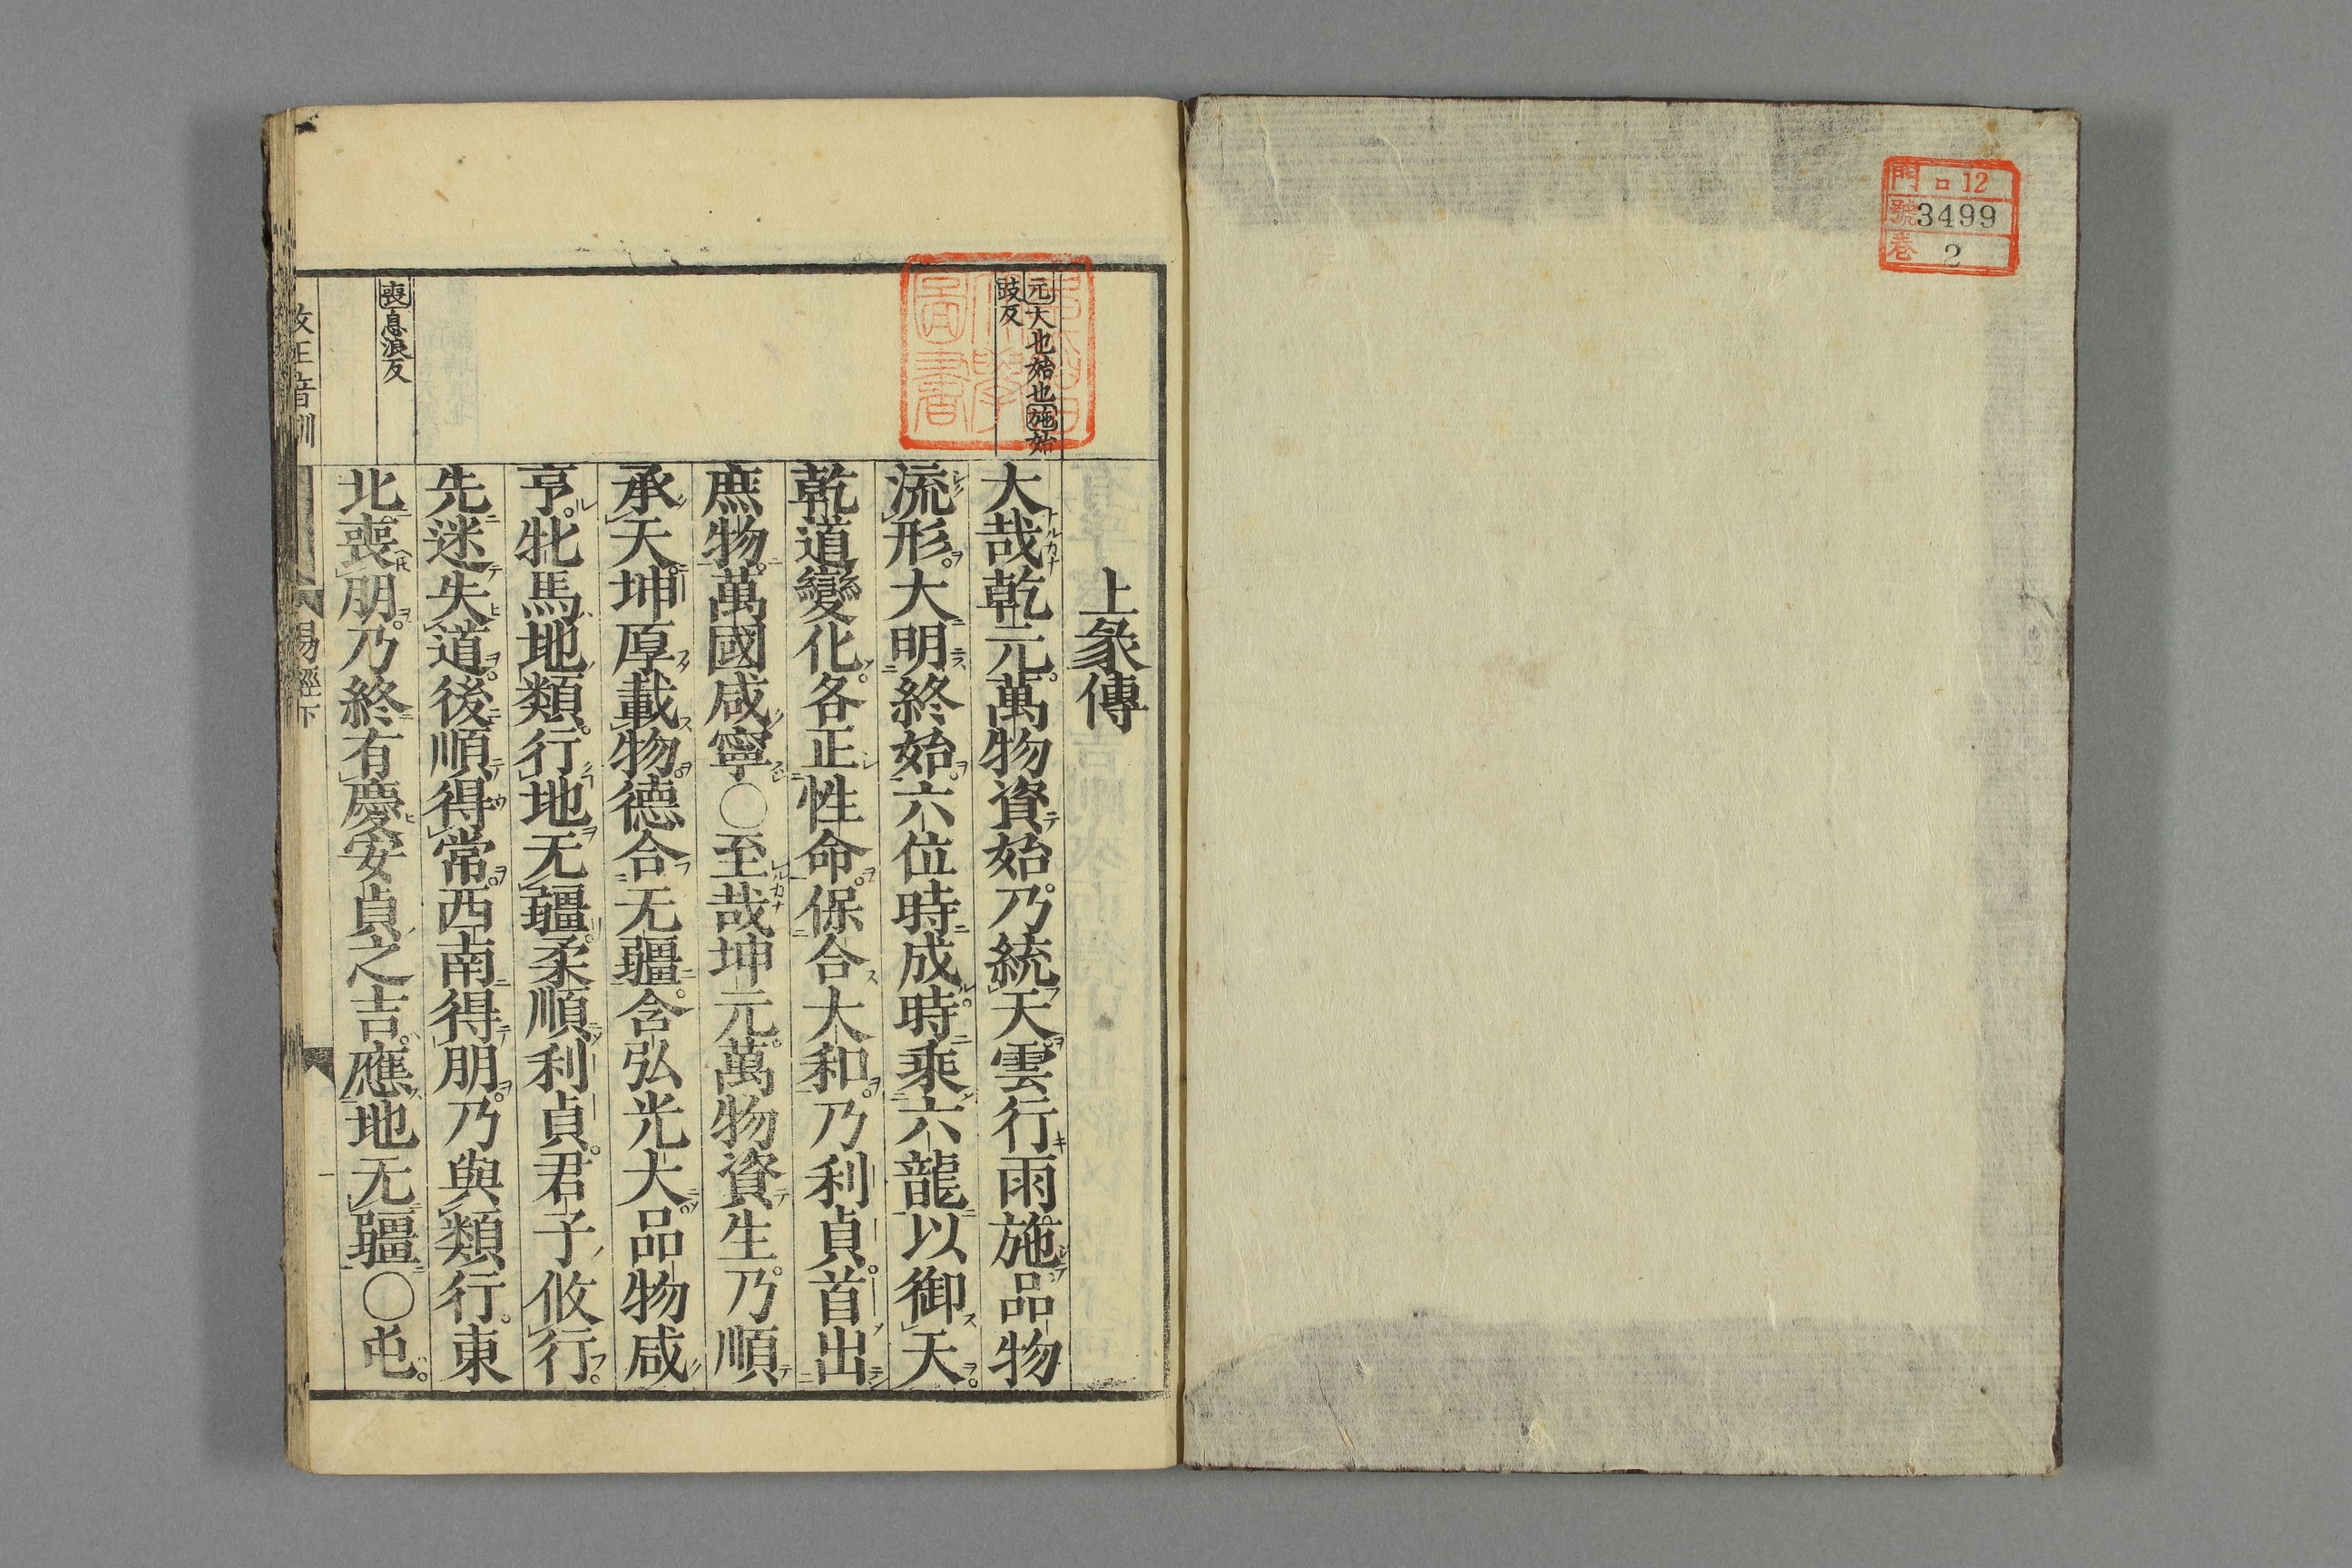 門 ロ12
號 3499
巻 2
元大也始也施始
豉反
喪息浪反
上彖傳
大哉乾元萬物資始乃統天雲行雨施品物
流形大明終始六位時成時乘六龍以御天
乾道變化各正性命保合大和乃利貞首出
庶物萬國咸寧○至哉坤元萬物資生乃順
承天坤厚載物德合无疆含弘光大品物咸
亨牝馬地類行地无疆柔順利貞君子攸行
先迷失道後順得常西南得朋乃與類行東
北喪朋乃終有慶安貞之吉應地无疆○屯
改正音訓
易經下
一